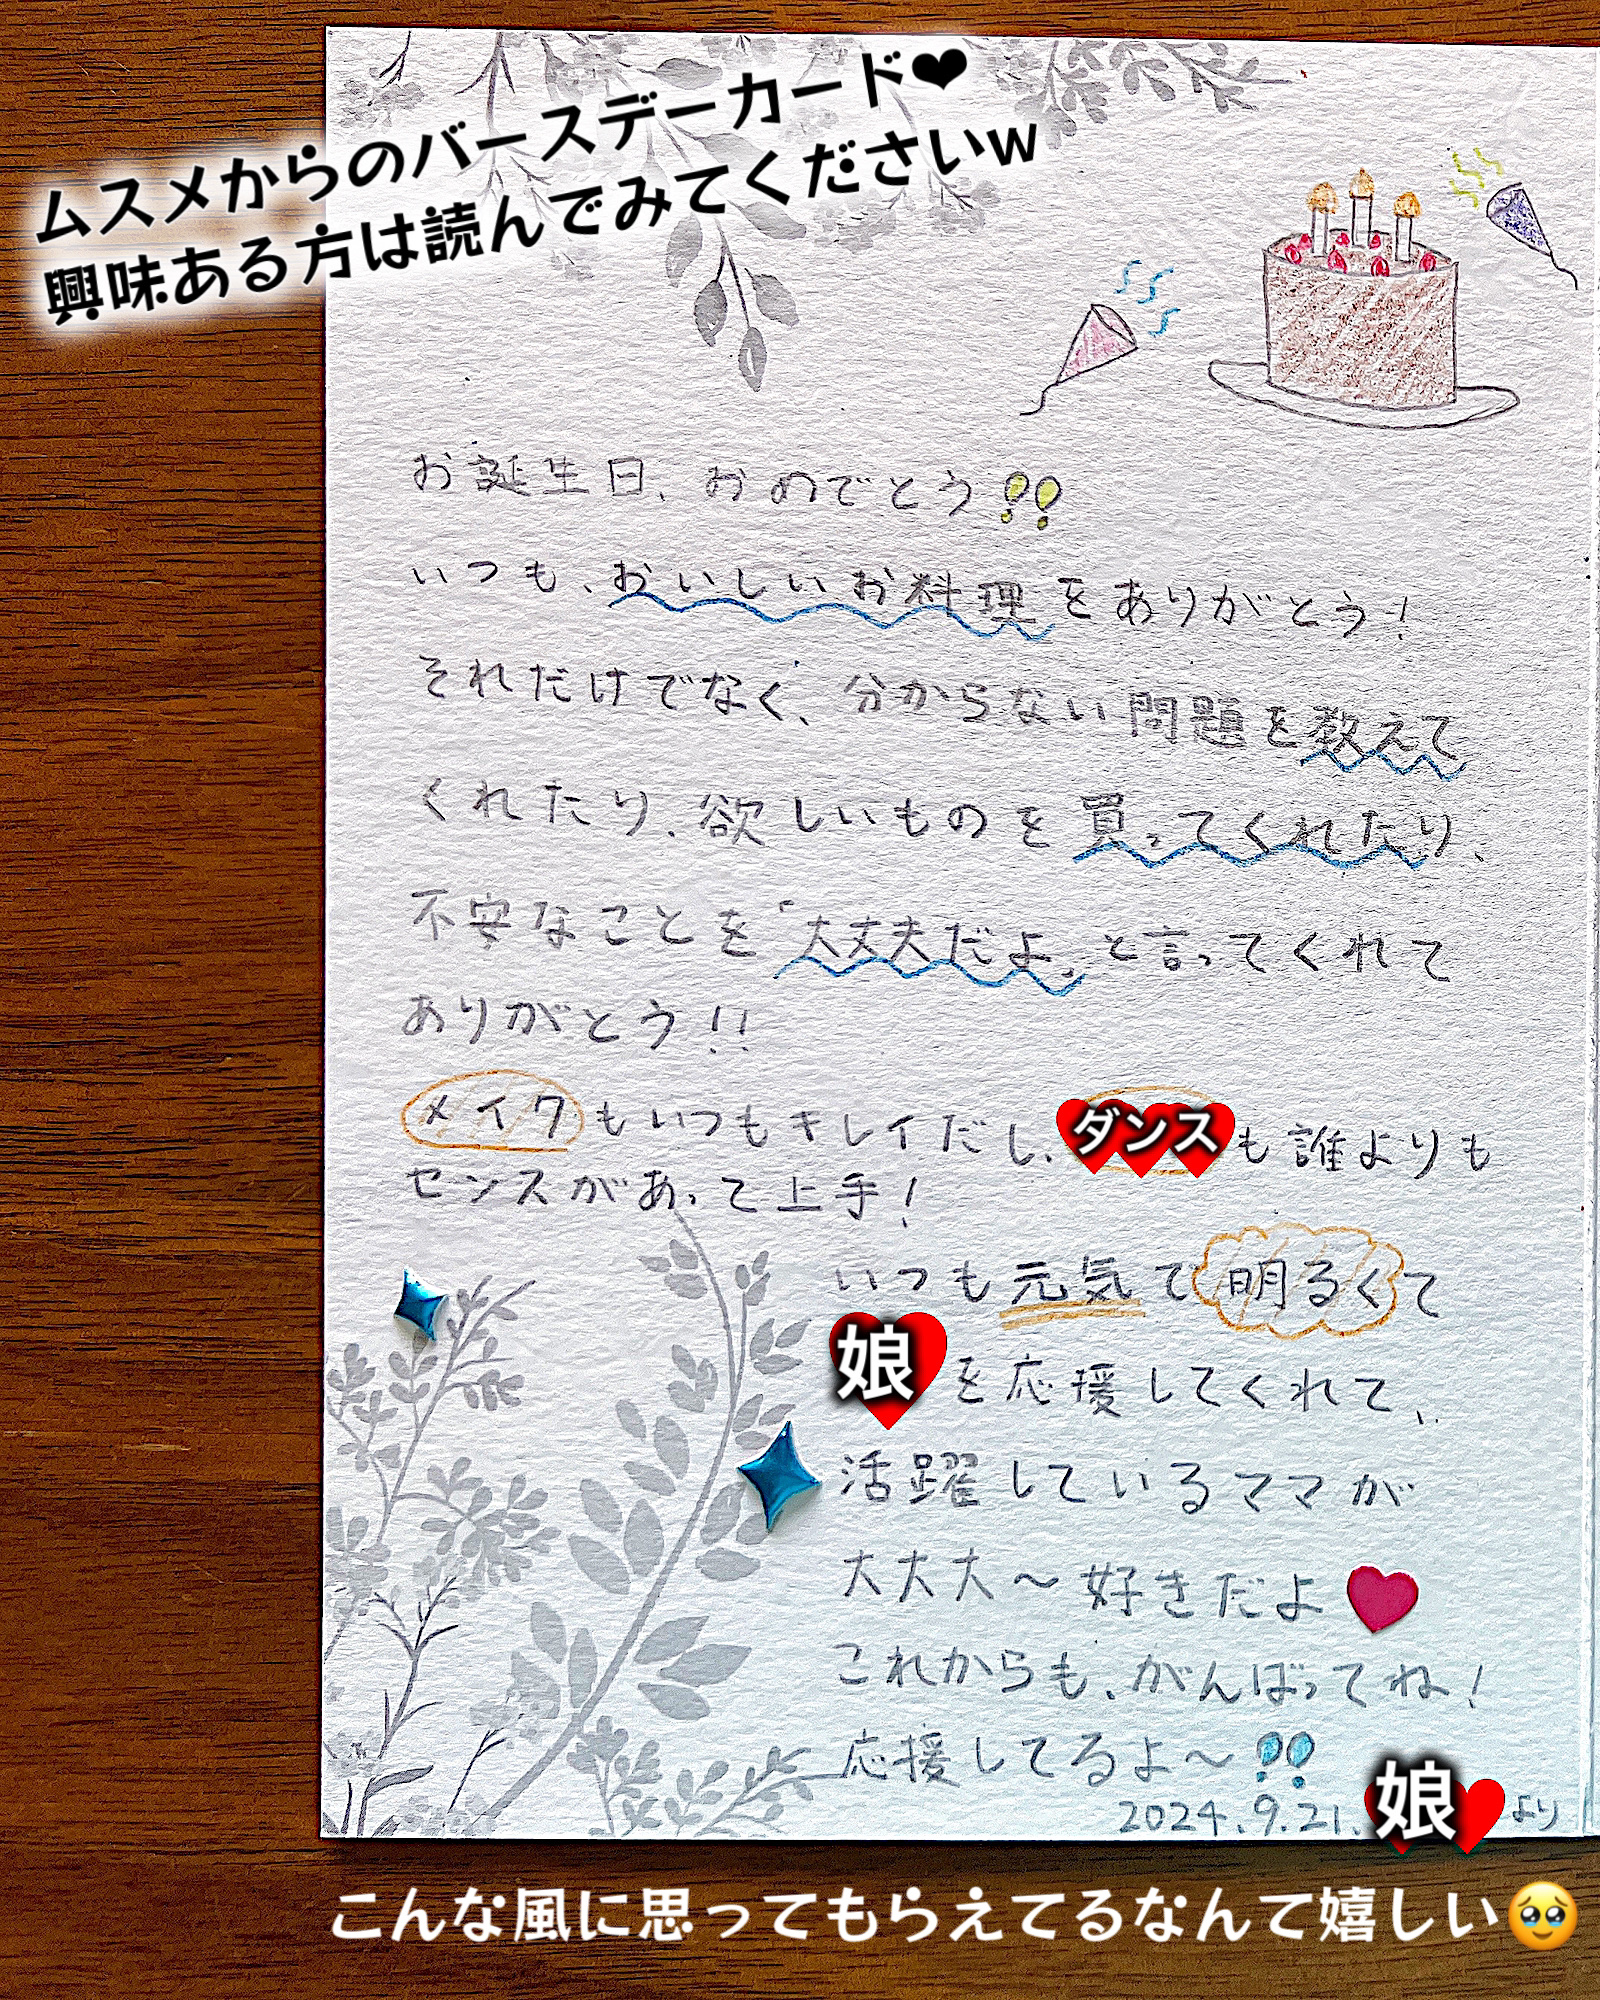 ムスメからのバースデーカード❤
興味ある方は読んでみてくださいw
お誕生日、おめでとう!!
いつも、おいしいお料理をありがとう!
それだけでなく、分からない問題を教えて
くれたり、欲しいものを買ってくれたり、
不安なことを「大丈夫だよ」と言ってくれて
ありがとう!!
メイクもいつもキレイだし、ダンスも誰よりも
センスがあって上手!
いつも元気で明るくて
娘を応援してくれて、
活躍しているママが
大大大〜好きだよ
これからも、がんばってね!
応援してるよ〜!!
2024.9.21.娘より
こんな風に思ってもらえてるなんて嬉しい🥹